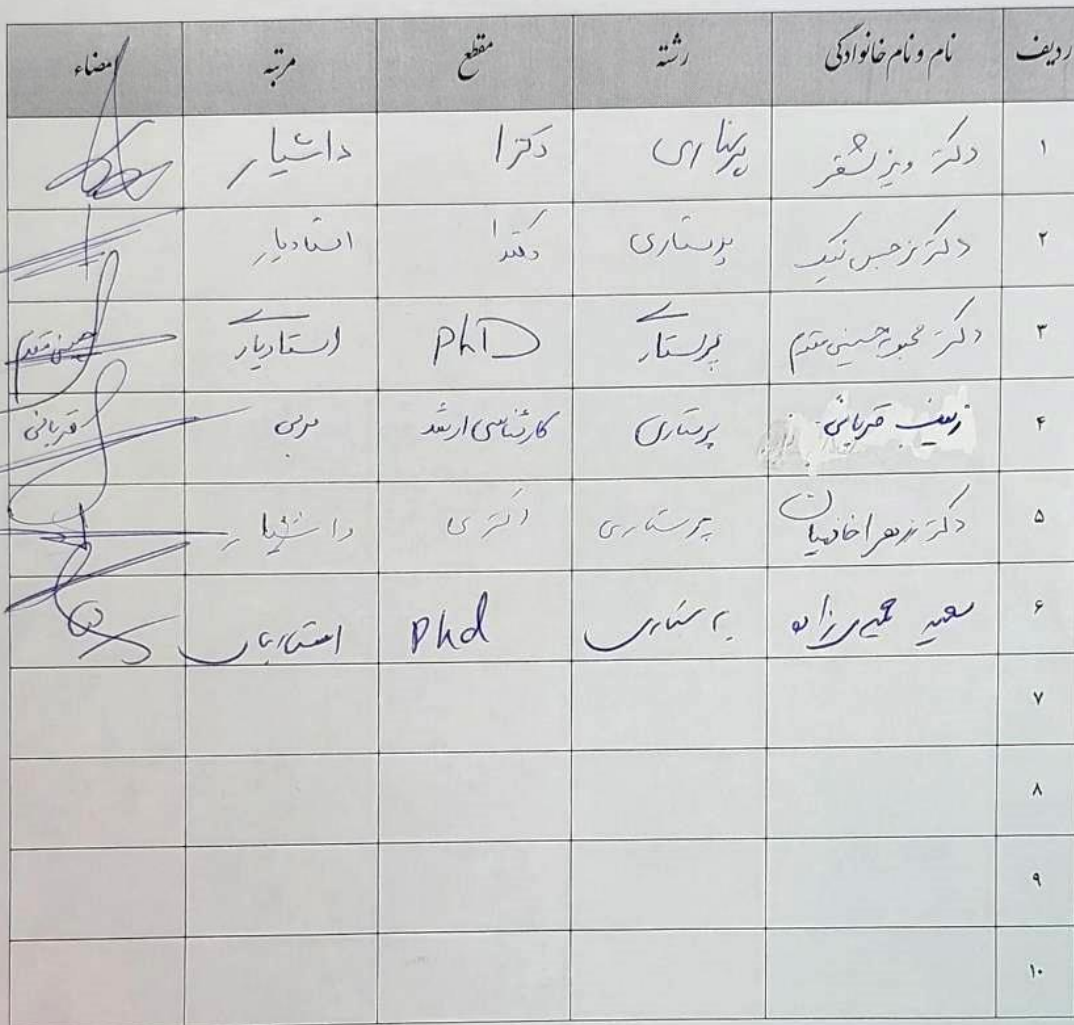 ردیف نام و نام خانوادگی رشته مقطع مرتبه امضاء
۱ دکتر پرستاری دکترا دانشیار
۲ دکتر نرجس نیک پرستاری دکترا استادیار
۳ دکتر محبوبه حسینی مقدم پرستاری PhD استادیار حسینی مقدم
۴ زینب قربانی پرستاری کارشناسی ارشد مربی قربانی
۵ دکتر زهرا پرستاری دکتری دانشیار
۶ پرستاری Phd استادیار
۷
۸
۹
۱۰